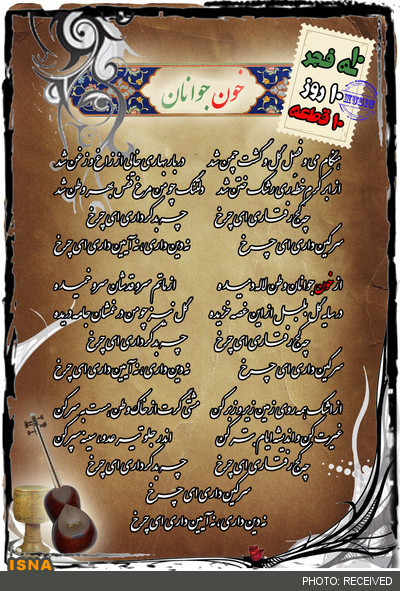 دهه فجر
۱۰ روز
۱۰ قطعه
MUSIC
خون جوانان
هنگام می و فصل گل و گشت چمن شد دربار بهاری خالی از زاغ و زغن شد
از ابر کرم خطه ری رشک ختن شد دلتنگ چو من مرغ قفس بهر وطن شد
چه کج رفتاری ای چرخ چه بدکرداری ای چرخ
سر کین داری ای چرخ نه دین داری، نه آیین داری ای چرخ
از خون جوانان وطن لاله دمیده از ماتم سرو قدشان سرو خمیده
در سایه گل بلبل از این غصه خزیده گل نیز چو من در غمشان جامه دریده
چه کج رفتاری ای چرخ چه بدکرداری ای چرخ
سر کین داری ای چرخ نه دین داری، نه آیین داری ای چرخ
از اشک همه روی زمین زیر و زبر کن مشتی گرت از خاک وطن هست به سر کن
غیرت کن و اندیشه ایام بتر کن اندر جلو تیر عدو سینه سپر کن
چه کج رفتاری ای چرخ چه بدکرداری ای چرخ
سر کین داری ای چرخ
نه دین داری، نه آیین داری ای چرخ
ISNA
PHOTO: RECEIVED